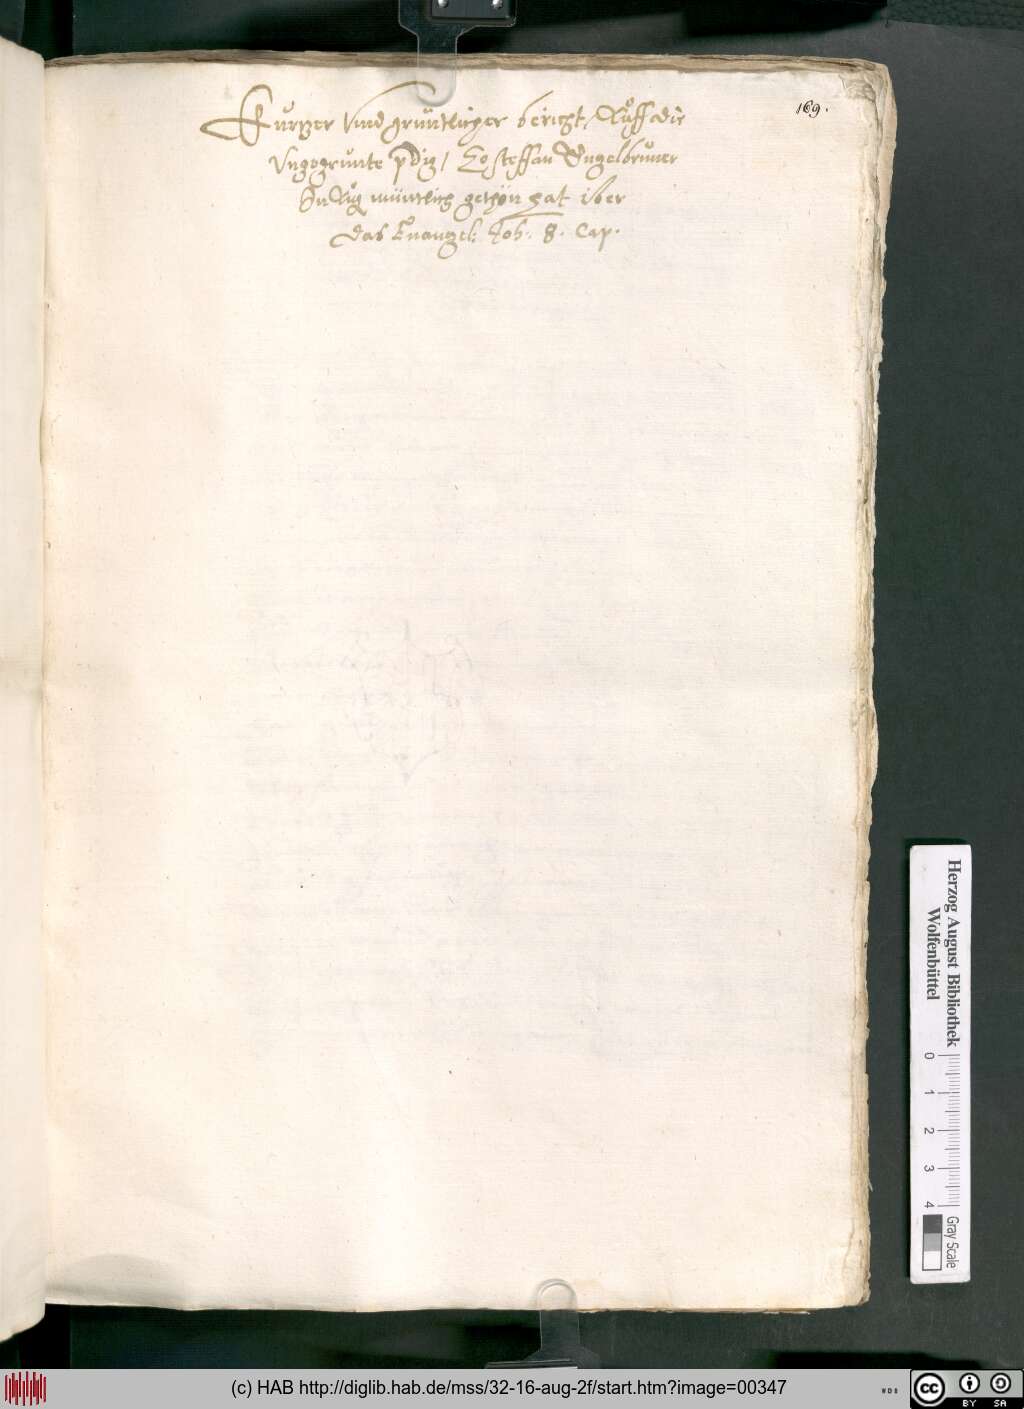 169.
Kurtzer Vnnd grüntlicher bericht, Auff die
Vngegrünte pdig / So steffan Engelbruner
In Aug müntlich gethon hat iber
das Euangel: Joh: 8. Cap.
Herzog August Bibliothek
Wolfenbüttel
0 1 2 3 4
Gray Scale
(c) HAB http://diglib.hab.de/mss/32-16-aug-2f/start.htm?image=00347
WDB
cc
BY SA